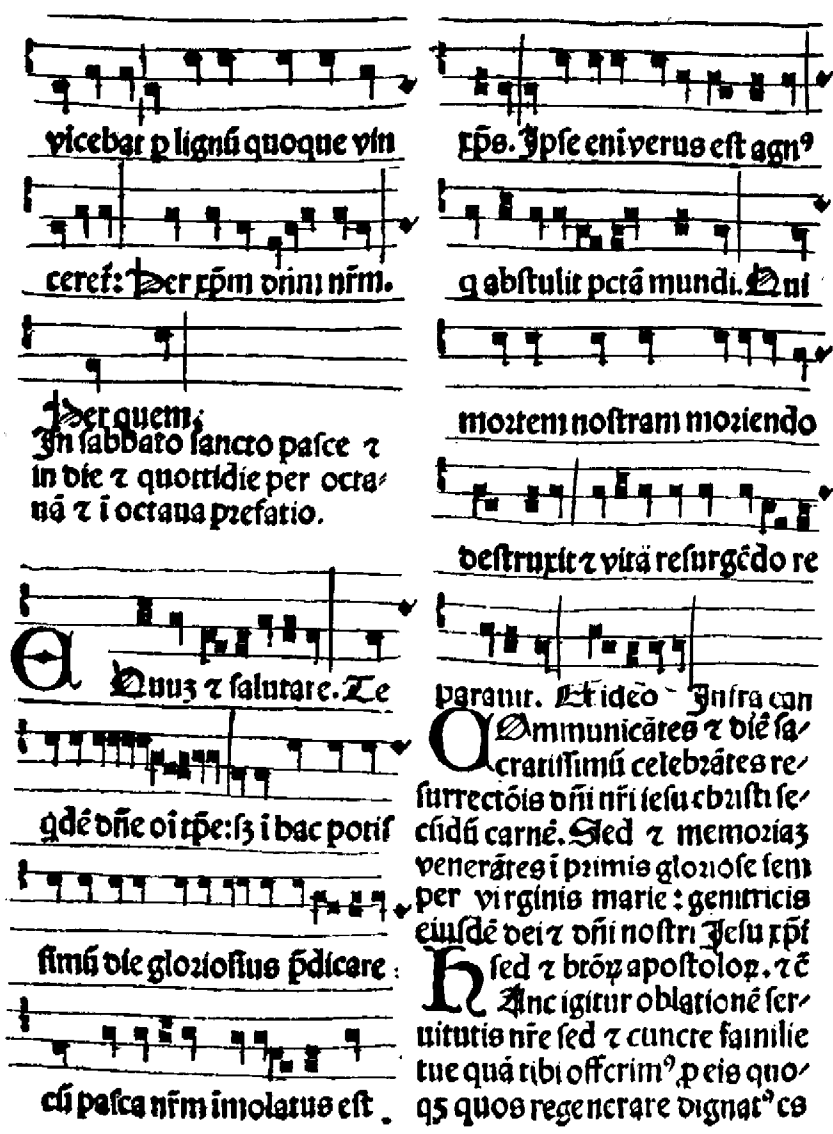 vicebat p lignū quoque vin
ceret̄: Per xp̄m dn̄m nr̄m.
Per quem;
In sabbato sancto pasce ⁊
in die ⁊ quottidie per octa⸗
nā ⁊ ī octaua prefatio.
E Quuʒ ⁊ salutare. Te
qdē dn̄e oī tp̄e: sʒ ī hac potis
simū die gloriosius p̄dicare
cū pasca nr̄m īmolatus est.
xp̄s. Ipse enī verus est agnꝰ
q abstulit pctā mundi. Qui
mortem nostram moriendo
destruxit ⁊ vitā resurgēdo re
parauit. Et ideo Infra can
COmmunicātes ⁊ diē sa⸗
cratissimū celebrātes re⸗
surrectōis dn̄i nr̄i iesu christi se⸗
cūdū carnē. Sed ⁊ memoriaʒ
venerātes ī primis gloriose sem
per virginis marie: genitricis
eiusdē dei ⁊ dn̄i nostri Jesu xp̄i
sed ⁊ btōꝝ apostoloꝝ. ⁊ c̄
HAnc igitur oblationē ser⸗
uitutis nr̄e sed ⁊ cuncte familie
tue quā tibi offerimꝰ. p eis quo⸗
qʒ quos regenerare dignatꝰ es